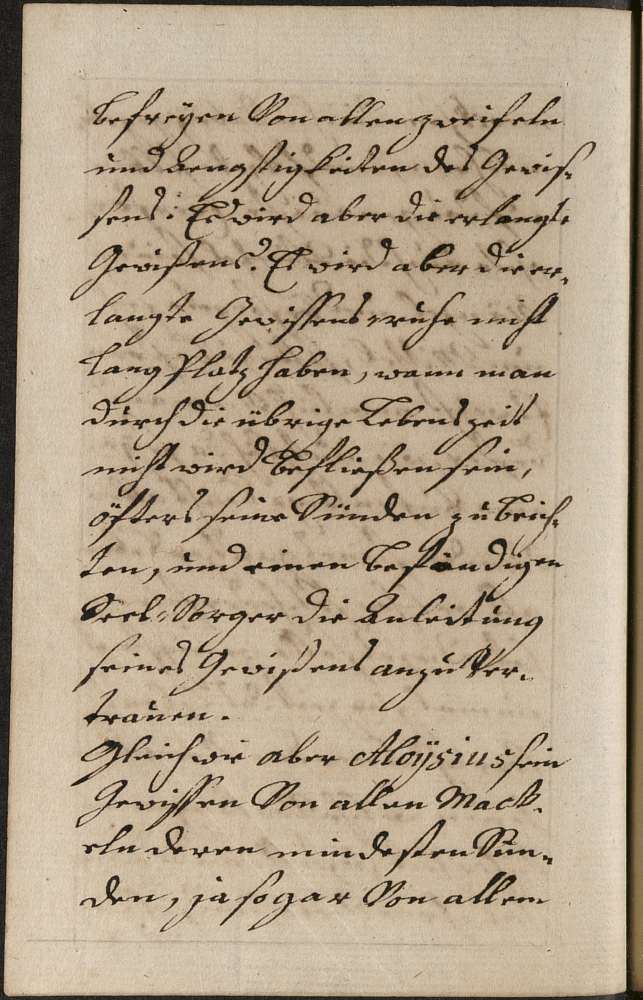 befreÿen Von allen zweifeln
und Aengstigkeiten des Gewis-
sens: Es wird aber die erlangte
Gewißens. Es wird aber die er-
langte Gewissens ruhe nicht
lang Platz haben, wann man
durch die übrige Lebens zeit
nicht wird befließen sein,
öfters seine Sünden zu beich-
ten, und einen beständigen
Seel-Sorger die Anleitung
seines Gewißens anzuVer-
trauen.
Gleich wie aber Aloÿsius sein
Gewissen Von allen Mack-
eln deren mindesten Sün-
den, ja sogar Von allem